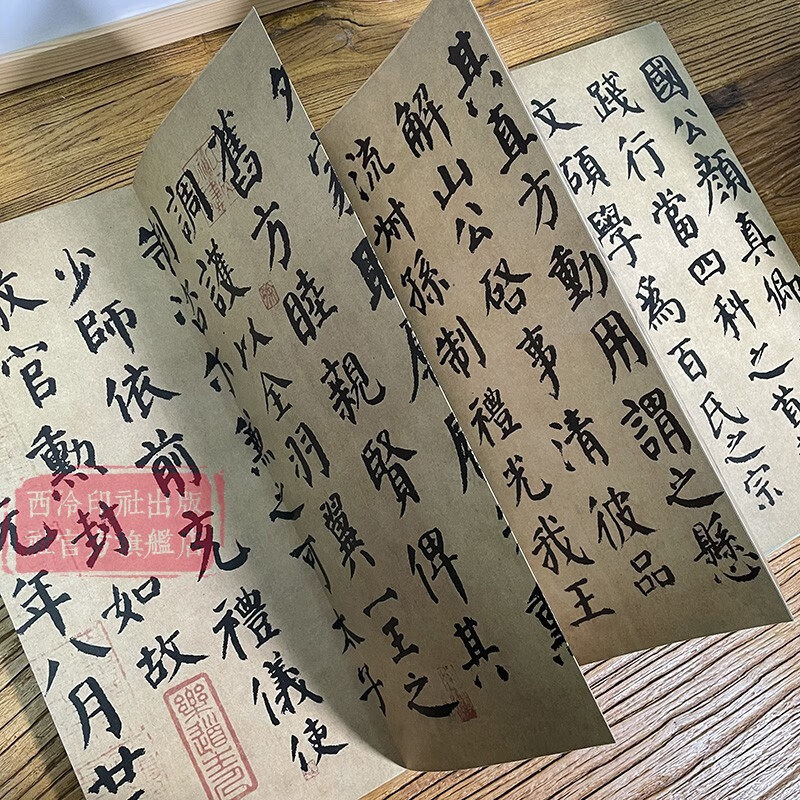 國公顏真卿
踐行當四科之首
文碩學爲百氏之宗
其直方動用謂之懸
解山公啓事清彼品
流𠦑孫制禮光我王
家聯
舊方睦親賢俾其
調護以全羽翼一王之
制咨尒兼之可太子
少師依前充禮儀使
官勳封如故
元年八月廿
西泠印社出版
社官方旗艦店